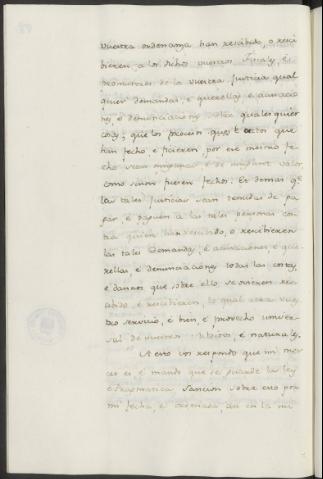 vuestra ordenanza han rescibido, o resci
bieren, a los dichos vuestros Fiscales, è
promutores de la vuestra Justicia qual
quier demandas, è querellas, è acusacio
nes, è denunciaciones sobre quales quier
cosas; que los procesos que sobre ellos
han fecho, è ficieren por ese mesmo fe
cho sean ningunos è de ningunt valor
como si non fuesen fechos. Et demas qe
las tales Justicias sean tenidas de pa
gar, è paguen a las tales personas con
tra quien han rescibido, o rescibieren
las tales demandas, è acusaciones, è que
rellas, è denunciaciones todas las costas,
è dannos que sobre ello se ovieren res
cibido, è rescibieren, lo qual será vues
tro servicio, è bien, è provecho univer
sal de vuestros subditos, è naturales.
A esto vos respondo que mi mer
ced es è mando que se guarde la ley
è Pragmatica Sancion sobre esto por
mi fecha, è ordenada, asi en la mi